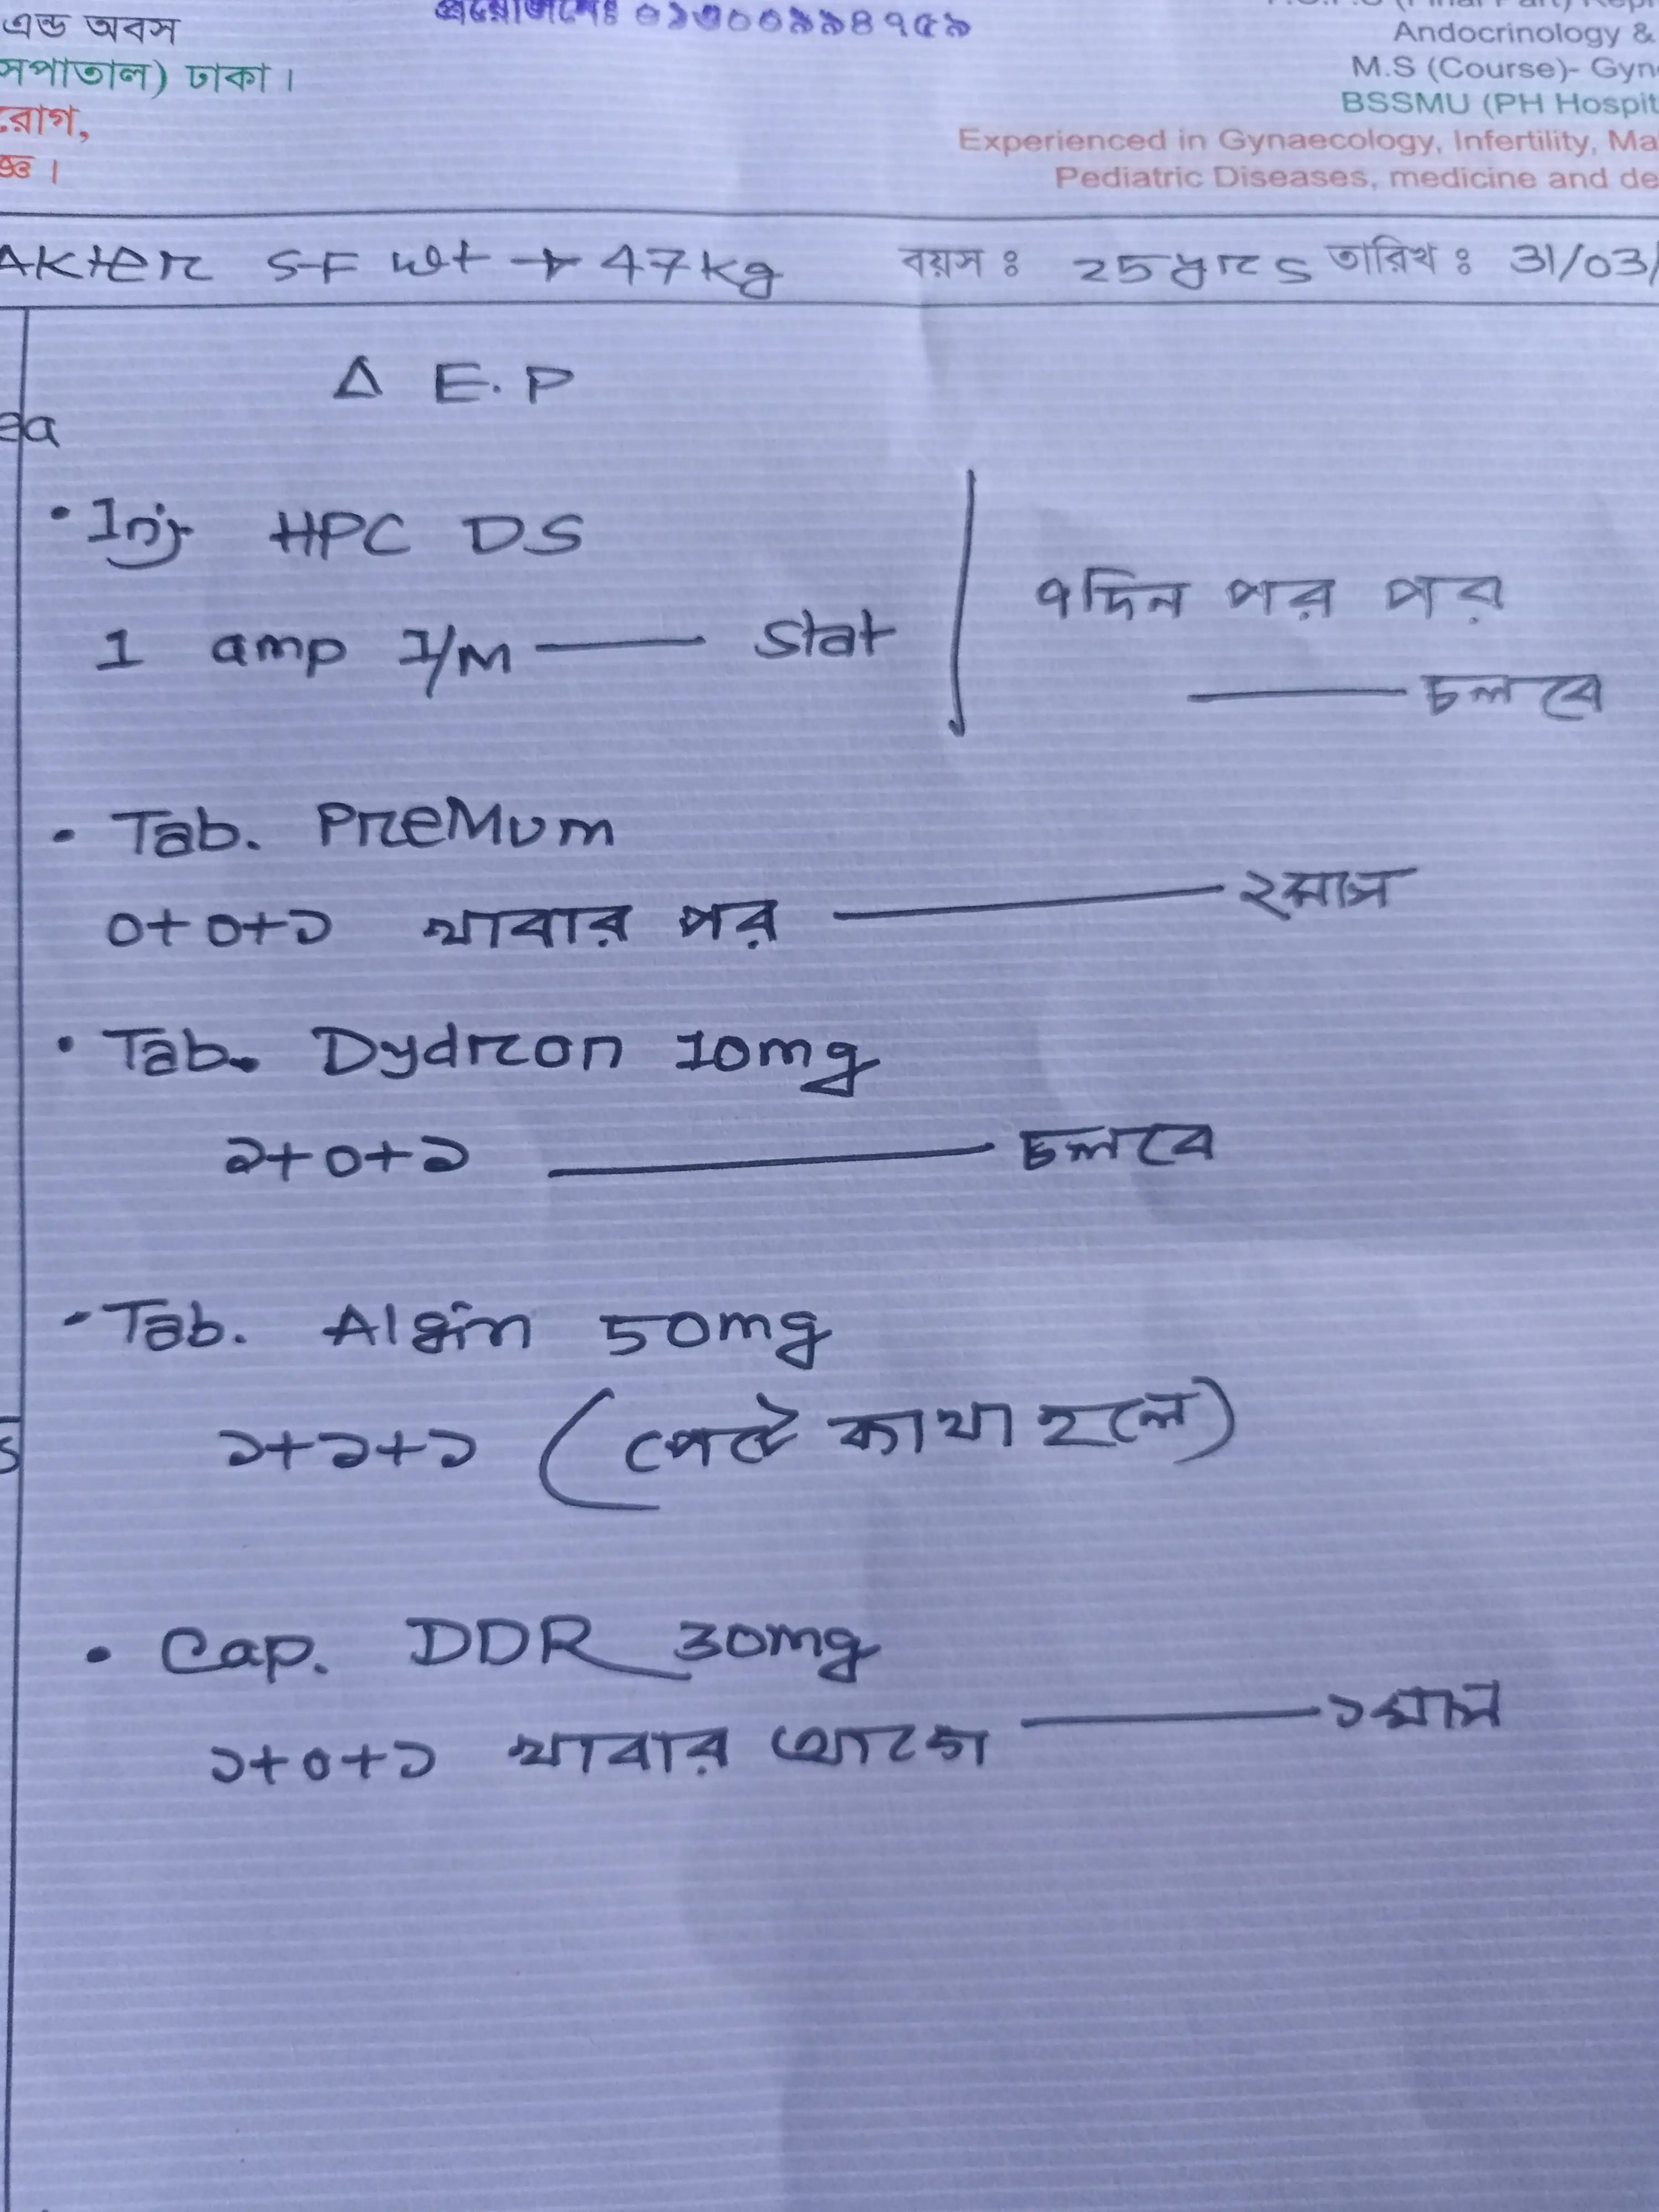 এন্ড অবস
সপাতাল) ঢাকা।
রোগ,
ঞ্জ।
০১৩০০৯৯৪৭৫৯
Andocrinology &
M.S (Course)- Gyn
BSSMU (PH Hospit
Experienced in Gynaecology, Infertility, Ma
Pediatric Diseases, medicine and de
Akter SF wt → 47kg বয়স ঃ 25yrs তারিখ ঃ 31/03/
Δ E.P
ea
• Inj HPC DS
1 amp I/M — Stat
৭দিন পর পর
— চলবে
• Tab. PreMum
০+০+১ খাবার পর — ২মাস
• Tab. Dydron 10mg
১+০+১ — চলবে
- Tab. Algin 50mg
১+১+১ (পেটে ব্যাথা হলে)
• Cap. DDR 30mg
১+০+১ খাবার আগে — ১মাস